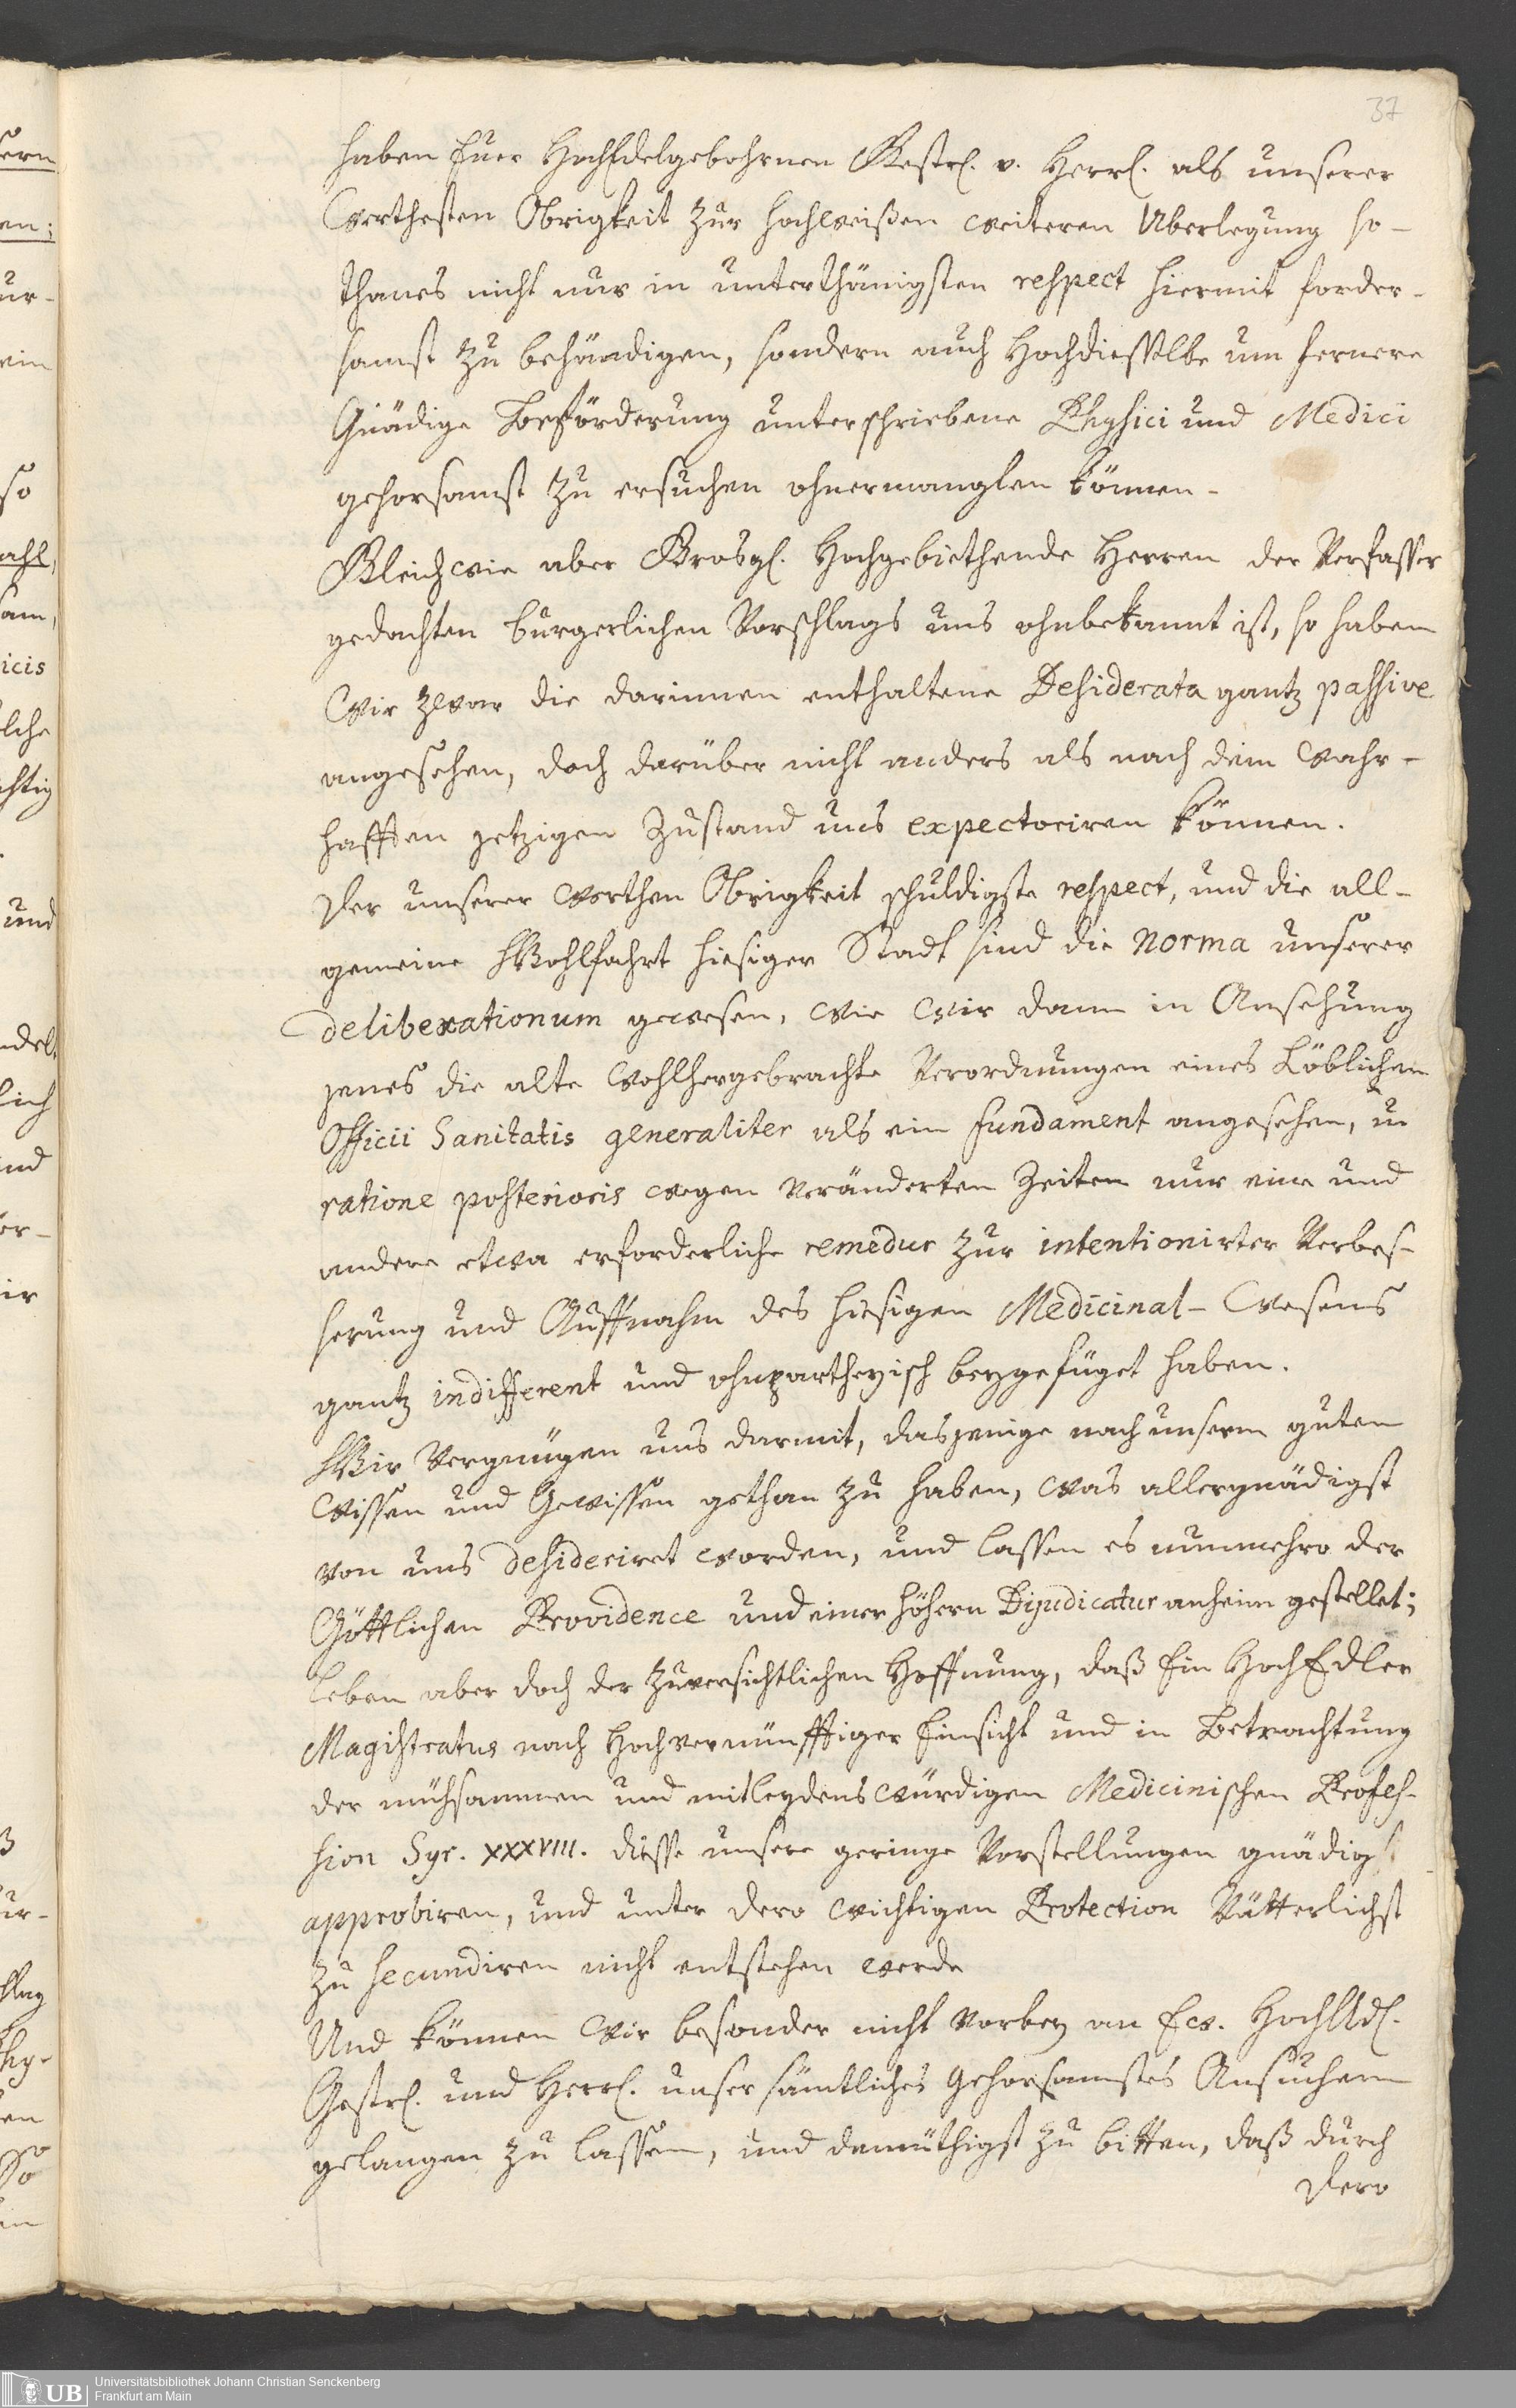 37
haben Euer HochEdelgebohrnen Gestrl. v. Herrl. als unserer
Werthesten Obrigkeit zur hochweißen weiteren Uberlegung so-
thanes nicht nur in unterthänigsten respect hiermit forder-
samst zu behändigen, sondern auch Hochdiesselbe um fernere
Gnädige Beförderung unterschriebene Physici und Medici
gehorsamst zu ersuchen ohnermanglen können.
Gleichwie aber Grosgl. Hochgebiethende Herren der Verfasser
gedachten burgerlichen Vorschlags uns ohnbekannt ist, so haben
Wir zwar die darinnen enthaltene Desiderata gantz passive
angesehen, doch darüber nicht anders als nach dem wahr-
hafften jetzigen Zustand uns expectoriren können.
Der unserer werthen Obrigkeit schuldigste respect, und die all-
gemeine Wohlfahrt hiesiger Stadt sind die Norma unserer
deliberationum gewesen, wie wir dann in Ansehung
jenes die alte wohlhergebrachte Verordnungen eines Löblichen
Officii Sanitatis generaliter als ein fundament angesehen, in
ratione posterioris wegen veränderten Zeiten nur eine und
andere etwa erforderliche remedur zur intentionirter Verbes-
serung und Auffnahm des hiesigen Medicinal-Wesens
gantz indifferent und ohnpartheyisch beygefüget haben.
Wir Vergnügen uns darmit, dasjenige nach unserm guten
Wissen und Gewissen gethan zu haben, was allergnädigst
von uns desideriret worden, und lassen es nunmehro der
Göttlichen Providence und einer höhern Dijudicatur anheim gestellet;
leben aber doch der zuversichtlichen Hoffnung, daß Ein HochEdler
Magistratus nach Hochvernünfftiger Einsicht und in Betrachtung
der mühsammen und mitleydenswürdigen Medicinischen Profes-
sion Syr. XXXVIII. diesse unsere geringe Vorstellungen gnädigst
approbiren, und unter dero wichtigen Protection Vätterlichst
zu secundiren nicht entstehen werde
Und können Wir besonder nicht vorbey an Ew. HochAdl.
Gestrl. und Herrl. unser sämtliches gehorsamstes Ansuchen
gelangen zu lassen, und demüthigst zu bitten, daß durch
Dero
UB
Universitätsbibliothek Johann Christian Senckenberg
Frankfurt am Main